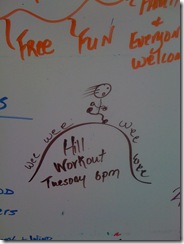 FREE FUN
&
EVERYONE
WELCOM
wee wee wee wee
Hill
Workout
Tuesday 6pm